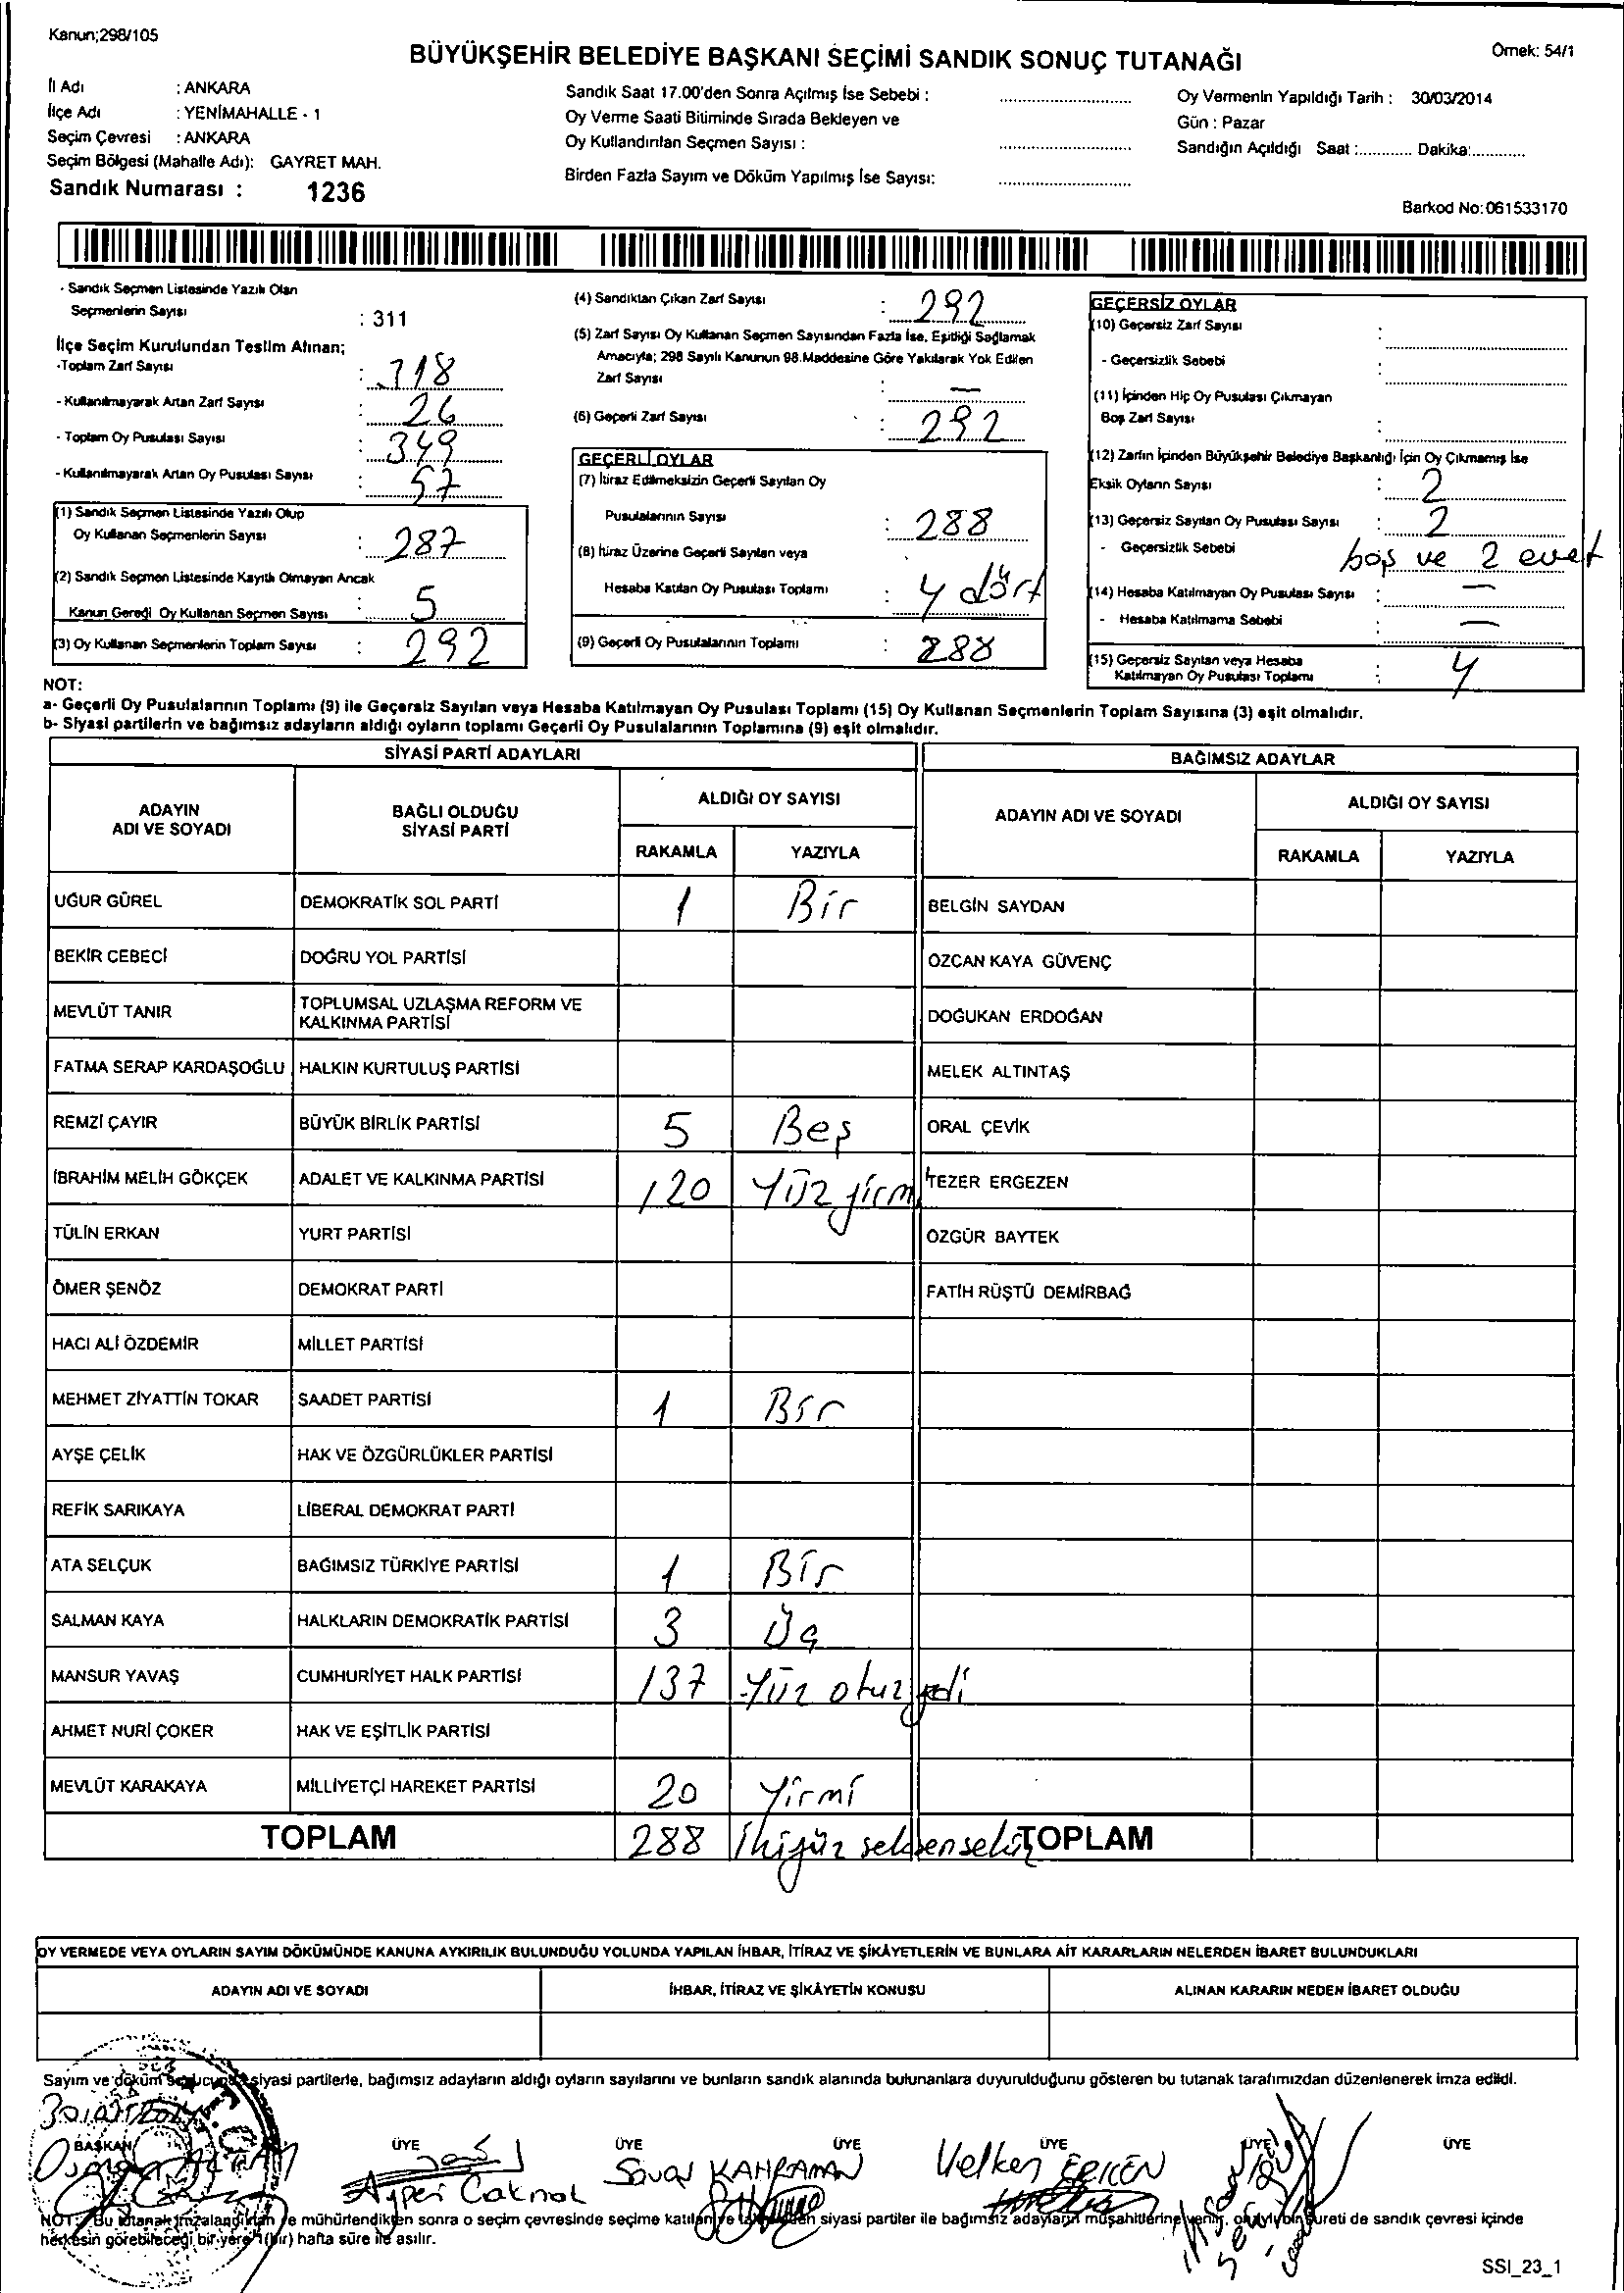 Kanun;298/105
BÜYÜKŞEHİR BELEDİYE BAŞKANI SEÇİMİ SANDIK SONUÇ TUTANAĞI
Örnek: 54/1
İl Adı : ANKARA
İlçe Adı : YENİMAHALLE - 1
Seçim Çevresi : ANKARA
Seçim Bölgesi (Mahalle Adı): GAYRET MAH.
Sandık Numarası : 1236
Sandık Saat 17.00'den Sonra Açılmış İse Sebebi :
Oy Verme Saati Bitiminde Sırada Bekleyen ve
Oy Kullandırılan Seçmen Sayısı :
Birden Fazla Sayım ve Döküm Yapılmış İse Sayısı:
Oy Vermenin Yapıldığı Tarih : 30/03/2014
Gün : Pazar
Sandığın Açıldığı Saat :............ Dakika:............
Barkod No:061533170
- Sandık Seçmen Listesinde Yazılı Olan
Seçmenlerin Sayısı : 311
İlçe Seçim Kurulundan Teslim Alınan;
-Toplam Zarf Sayısı : 318
- Kullanılmayarak Artan Zarf Sayısı : 26
- Toplam Oy Pusulası Sayısı : 349
- Kullanılmayarak Artan Oy Pusulası Sayısı : 57
(1) Sandık Seçmen Listesinde Yazılı Olup
Oy Kullanan Seçmenlerin Sayısı : 287
(2) Sandık Seçmen Listesinde Kayıtlı Olmayan Ancak
Kanun Gereği Oy Kullanan Seçmen Sayısı : 5
(3) Oy Kullanan Seçmenlerin Toplam Sayısı : 292
(4) Sandıktan Çıkan Zarf Sayısı : 292
(5) Zarf Sayısı Oy Kullanan Seçmen Sayısından Fazla İse, Eşitliği Sağlamak
Amacıyla; 298 Sayılı Kanunun 98.Maddesine Göre Yakılarak Yok Edilen
Zarf Sayısı : —
(6) Geçerli Zarf Sayısı : 292
GEÇERLİ OYLAR
(7) İtiraz Edilmeksizin Geçerli Sayılan Oy
Pusulalarının Sayısı : 288
(8) İtiraz Üzerine Geçerli Sayılan veya
Hesaba Katılan Oy Pusulası Toplamı : 4 dört
(9) Geçerli Oy Pusulalarının Toplamı : 288
GEÇERSİZ OYLAR
(10) Geçersiz Zarf Sayısı :
- Geçersizlik Sebebi :
(11) İçinden Hiç Oy Pusulası Çıkmayan
Boş Zarf Sayısı :
(12) Zarfın İçinden Büyükşehir Belediye Başkanlığı İçin Oy Çıkmamış İse
Eksik Oyların Sayısı : 2
(13) Geçersiz Sayılan Oy Pusulası Sayısı : 2
- Geçersizlik Sebebi boş ve 2 evet
(14) Hesaba Katılmayan Oy Pusulası Sayısı : —
- Hesaba Katılmama Sebebi : —
(15) Geçersiz Sayılan veya Hesaba
Katılmayan Oy Pusulası Toplamı : 4
NOT:
a- Geçerli Oy Pusulalarının Toplamı (9) ile Geçersiz Sayılan veya Hesaba Katılmayan Oy Pusulası Toplamı (15) Oy Kullanan Seçmenlerin Toplam Sayısına (3) eşit olmalıdır.
b- Siyasi partilerin ve bağımsız adayların aldığı oyların toplamı Geçerli Oy Pusulalarının Toplamına (9) eşit olmalıdır.
SİYASİ PARTİ ADAYLARI
BAĞIMSIZ ADAYLAR
ADAYIN ADI VE SOYADI
BAĞLI OLDUĞU SİYASİ PARTİ
ALDIĞI OY SAYISI
RAKAMLA YAZIYLA
ADAYIN ADI VE SOYADI
ALDIĞI OY SAYISI
RAKAMLA YAZIYLA
UĞUR GÜREL DEMOKRATİK SOL PARTİ 1 Bir BELGİN SAYDAN
BEKİR CEBECİ DOĞRU YOL PARTİSİ ÖZCAN KAYA GÜVENÇ
MEVLÜT TANIR TOPLUMSAL UZLAŞMA REFORM VE KALKINMA PARTİSİ DOĞUKAN ERDOĞAN
FATMA SERAP KARDAŞOĞLU HALKIN KURTULUŞ PARTİSİ MELEK ALTINTAŞ
REMZİ ÇAYIR BÜYÜK BİRLİK PARTİSİ 5 Beş ORAL ÇEVİK
İBRAHİM MELİH GÖKÇEK ADALET VE KALKINMA PARTİSİ 120 Yüz yirmi TEZER ERGEZEN
TÜLİN ERKAN YURT PARTİSİ ÖZGÜR BAYTEK
ÖMER ŞENÖZ DEMOKRAT PARTİ FATİH RÜŞTÜ DEMİRBAĞ
HACI ALİ ÖZDEMİR MİLLET PARTİSİ
MEHMET ZİYATTİN TOKAR SAADET PARTİSİ 1 Bir
AYŞE ÇELİK HAK VE ÖZGÜRLÜKLER PARTİSİ
REFİK SARIKAYA LİBERAL DEMOKRAT PARTİ
ATA SELÇUK BAĞIMSIZ TÜRKİYE PARTİSİ 1 Bir
SALMAN KAYA HALKLARIN DEMOKRATİK PARTİSİ 3 Üç
MANSUR YAVAŞ CUMHURİYET HALK PARTİSİ 137 Yüz otuz yedi
AHMET NURİ ÇOKER HAK VE EŞİTLİK PARTİSİ
MEVLÜT KARAKAYA MİLLİYETÇİ HAREKET PARTİSİ 20 Yirmi
TOPLAM 288 İkiyüz seksensekiz TOPLAM
OY VERMEDE VEYA OYLARIN SAYIM DÖKÜMÜNDE KANUNA AYKIRILIK BULUNDUĞU YOLUNDA YAPILAN İHBAR, İTİRAZ VE ŞİKÂYETLERİN VE BUNLARA AİT KARARLARIN NELERDEN İBARET BULUNDUKLARI
ADAYIN ADI VE SOYADI İHBAR, İTİRAZ VE ŞİKÂYETİN KONUSU ALINAN KARARIN NEDEN İBARET OLDUĞU
Sayım ve döküm sonucunda siyasi partilerle, bağımsız adayların aldığı oyların sayılarını ve bunların sandık alanında bulunanlara duyurulduğunu gösteren bu tutanak tarafımızdan düzenlenerek imza edildi.
BAŞKAN ÜYE ÜYE ÜYE ÜYE ÜYE ÜYE
Savaş KAHRAMAN
NOT: Bu tutanak imzalandıktan ve mühürlendikten sonra o seçim çevresinde seçime katılan siyasi partiler ile bağımsız adayların müşahitlerine verilir, sureti de sandık çevresi içinde
herkesin görebileceği bir yere 1(bir) hafta süre ile asılır.
SSI_23_1